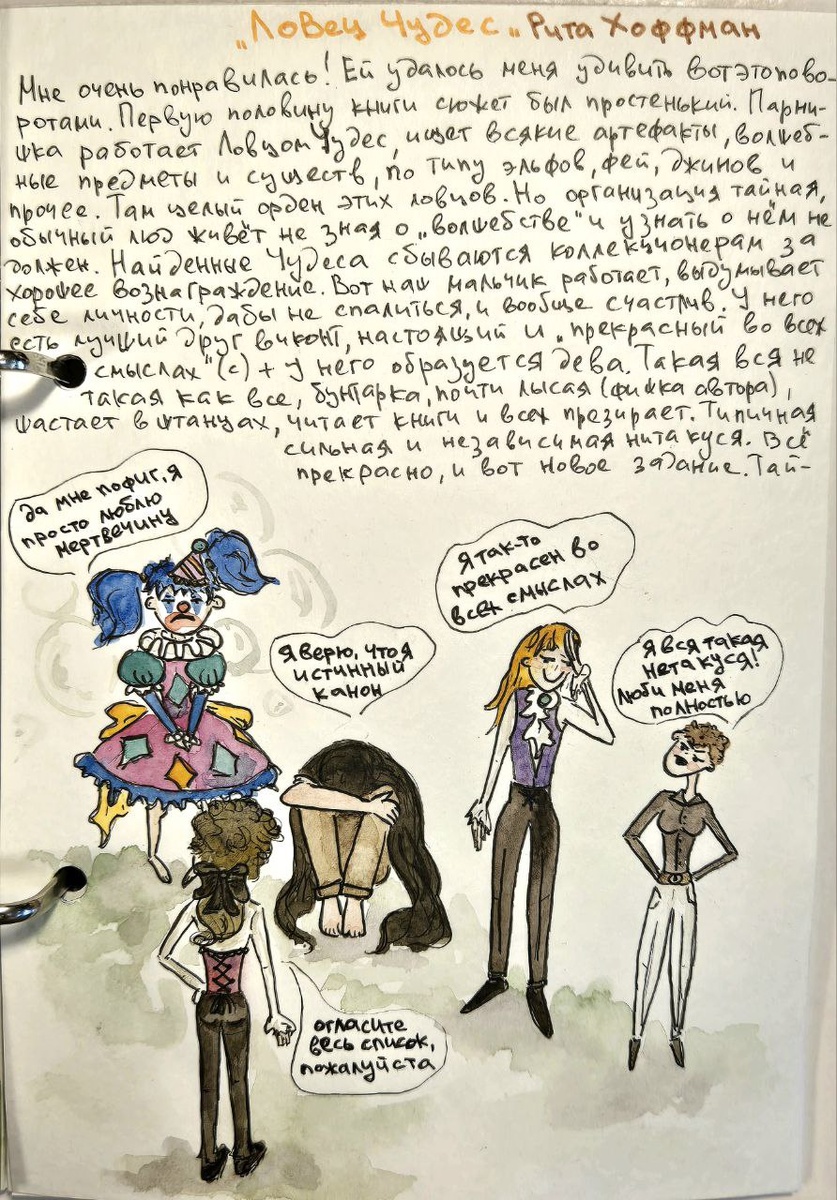 „Ловец Чудес„ Рита Хоффман
Мне очень понравилась! Ей удалось меня удивить вотэтопово-
ротами. Первую половину книги сюжет был простенький. Парни-
шка работает Ловцом Чудес, ищет всякие артефакты, волшеб-
ные предметы и существ, по типу эльфов, фей, джинов и
прочее. Там целый орден этих ловцов. Но организация тайная,
обычный люд живёт не зная о „волшебстве" и узнать о нём не
должен. Найденные Чудеса сбываются коллекционерам за
хорошее вознаграждение. Вот наш мальчик работает, выдумывает
себе личности, дабы не спалиться, и вообще счастлив. У него
есть лучший друг виконт, настоящий и „прекрасный во всех
смыслах" (с) + у него образуется дева. Такая вся не
такая как все, бунтарка, почти лысая (фишка автора),
шастает в штанцах, читает книги и всех презирает. Типичная
сильная и независимая нитакуся. Всё
прекрасно, и вот новое задание. Тай-
да мне пофиг, я
просто люблю
мертвечину
Я верю, что я
истинный
канон
Я так-то
прекрасен во
всех смыслах
Я вся такая
нетакуся!
Люби меня
полностью
огласите
весь список,
пожалуйста